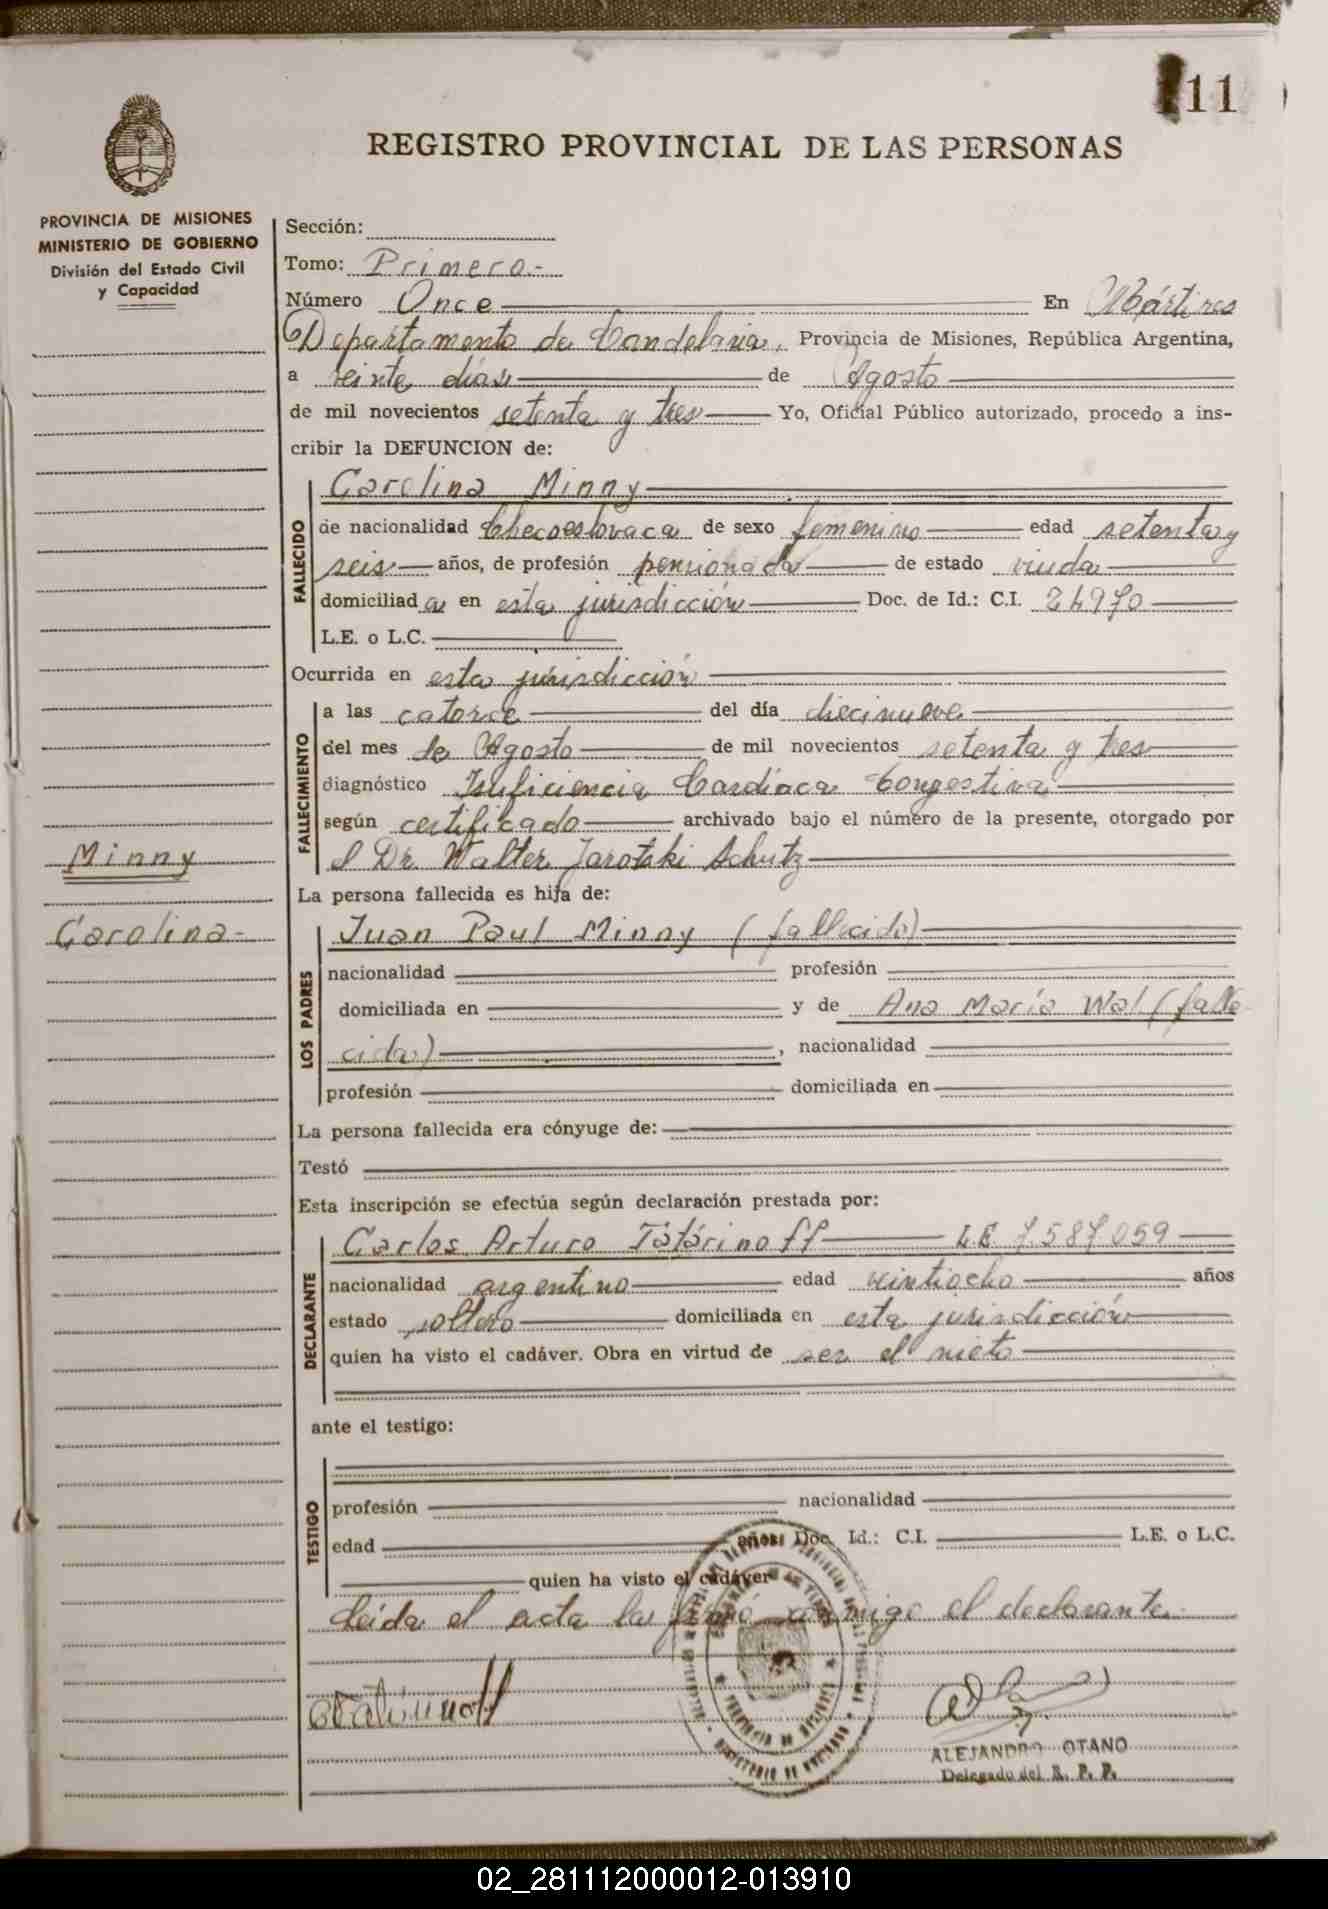 11
REGISTRO PROVINCIAL DE LAS PERSONAS
PROVINCIA DE MISIONES
MINISTERIO DE GOBIERNO
División del Estado Civil
y Capacidad
Sección:
Tomo: Primero.-
Número Once En Mártires
Departamento de Candelaria, Provincia de Misiones, República Argentina,
a veinte días de Agosto
de mil novecientos setenta y tres Yo, Oficial Público autorizado, procedo a ins-
cribir la DEFUNCION de:
FALLECIDO
Carolina Minny
de nacionalidad Checoeslovaca de sexo femenino edad setenta y
seis años, de profesión pensionada de estado viuda
domiciliad a en esta jurisdicción Doc. de Id.: C.I. 24970
L.E. o L.C.
Ocurrida en esta jurisdicción
FALLECIMIENTO
a las catorce del día diecinueve
del mes de Agosto de mil novecientos setenta y tres
diagnóstico Insuficiencia Cardíaca Congestiva
según certificado archivado bajo el número de la presente, otorgado por
el Dr. Walter Jarotski Schutz
Minny
Carolina-
La persona fallecida es hija de:
LOS PADRES
Juan Paul Minny (fallecido)
nacionalidad profesión
domiciliada en y de Ana María Wal (falle
cida) , nacionalidad
profesión domiciliada en
La persona fallecida era cónyuge de:
Testó
Esta inscripción se efectúa según declaración prestada por:
DECLARANTE
Carlos Arturo Tatárinoff L.E. 7.587.059
nacionalidad argentino edad veintiocho años
estado soltero domiciliada en esta jurisdicción
quien ha visto el cadáver. Obra en virtud de ser el nieto
ante el testigo:
TESTIGO
profesión nacionalidad
edad años: Doc. Id.: C.I. L.E. o L.C.
quien ha visto el cadáver
Leída el acta la firmó conmigo el declarante.
Tatarinoff
ALEJANDRO OTANO
Delegado del R. P. P.
02_281112000012-013910